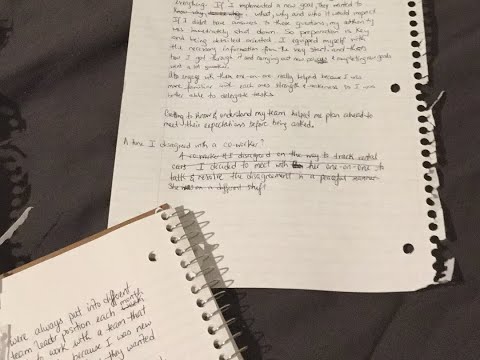 everything. If I implemented a new goal, they wanted to
know why, what, why and who it would impact
If I didn't have answers to those questions, my authority
was immediately shut down. So preperation is key
and being detailed oriented. I equipped myself with
the necessary information from the very start and
how I got through it and carrying out new & completing new goals
went a lot smoother.
engage with them one-on-one really helped because I was
more familiar with each ones strengths & weaknesses so I was
able to delegate tasks
Getting to know & understand my team helped me plan ahead to
meet their expectations before being asked.
A time I disagreed with a co-worker?
A co-worker & I disagreed on the way to track
I decided to meet with her one-on-one to
talk & resolve the disagreement in a peaceful manner
She in a different shift
were always put into different
team leader position each month
work with a team that
because I was new
they wanted